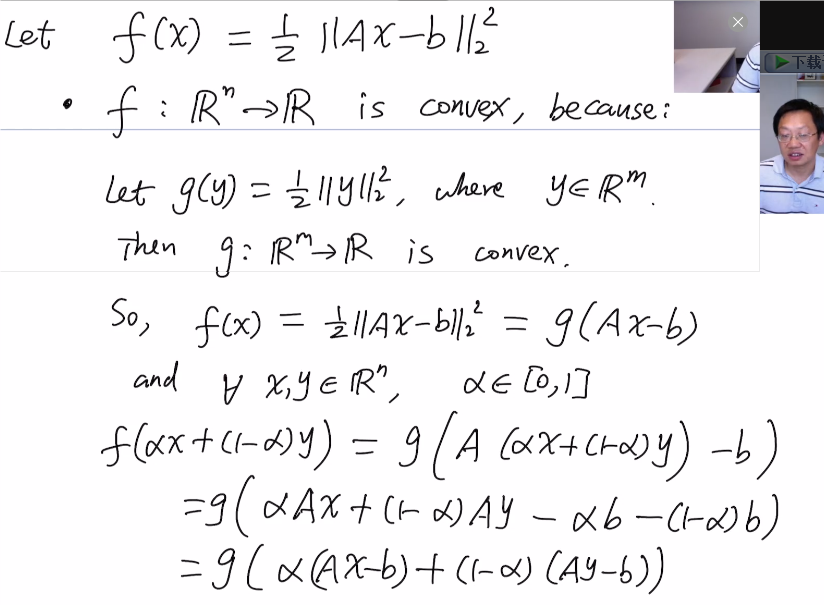 Let f(x) = ½ ||Ax-b||₂²
• f : ℝⁿ→ℝ is convex, because:
Let g(y) = ½||y||₂², where y∈ℝᵐ.
Then g: ℝᵐ→ℝ is convex.
So, f(x) = ½||Ax-b||₂² = g(Ax-b)
and ∀ x,y∈ℝⁿ, α∈[0,1]
f(αx+(1-α)y) = g(A(αx+(1-α)y)-b)
=g(αAx+(1-α)Ay-αb-(1-α)b)
=g(α(Ax-b)+(1-α)(Ay-b))
下载